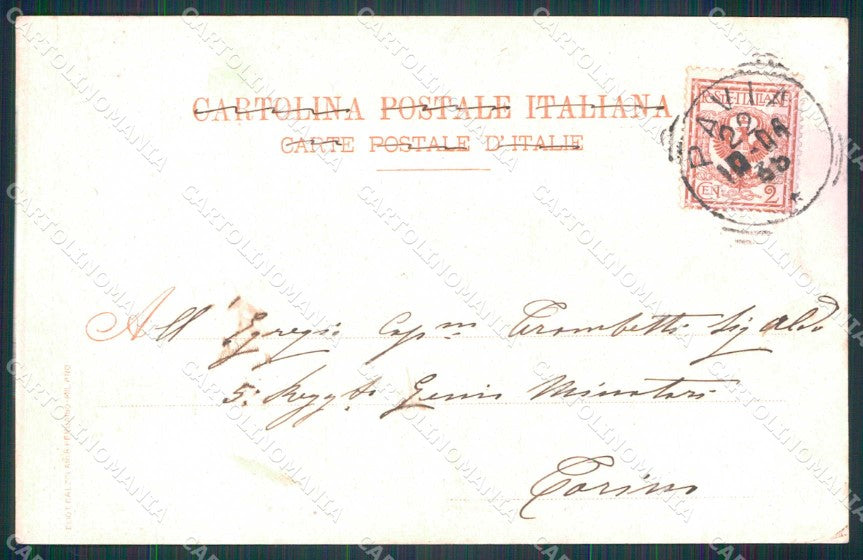 CARTOLINA POSTALE ITALIANA
CARTE POSTALE D'ITALIE
POSTE ITALIANE
CEN. 2
PAVIA
22
10-04
All' Egregio Capno Trombetti Sig Aldo
5: Reggto Genio Minatori
Torino
CARTOLINOMANIA